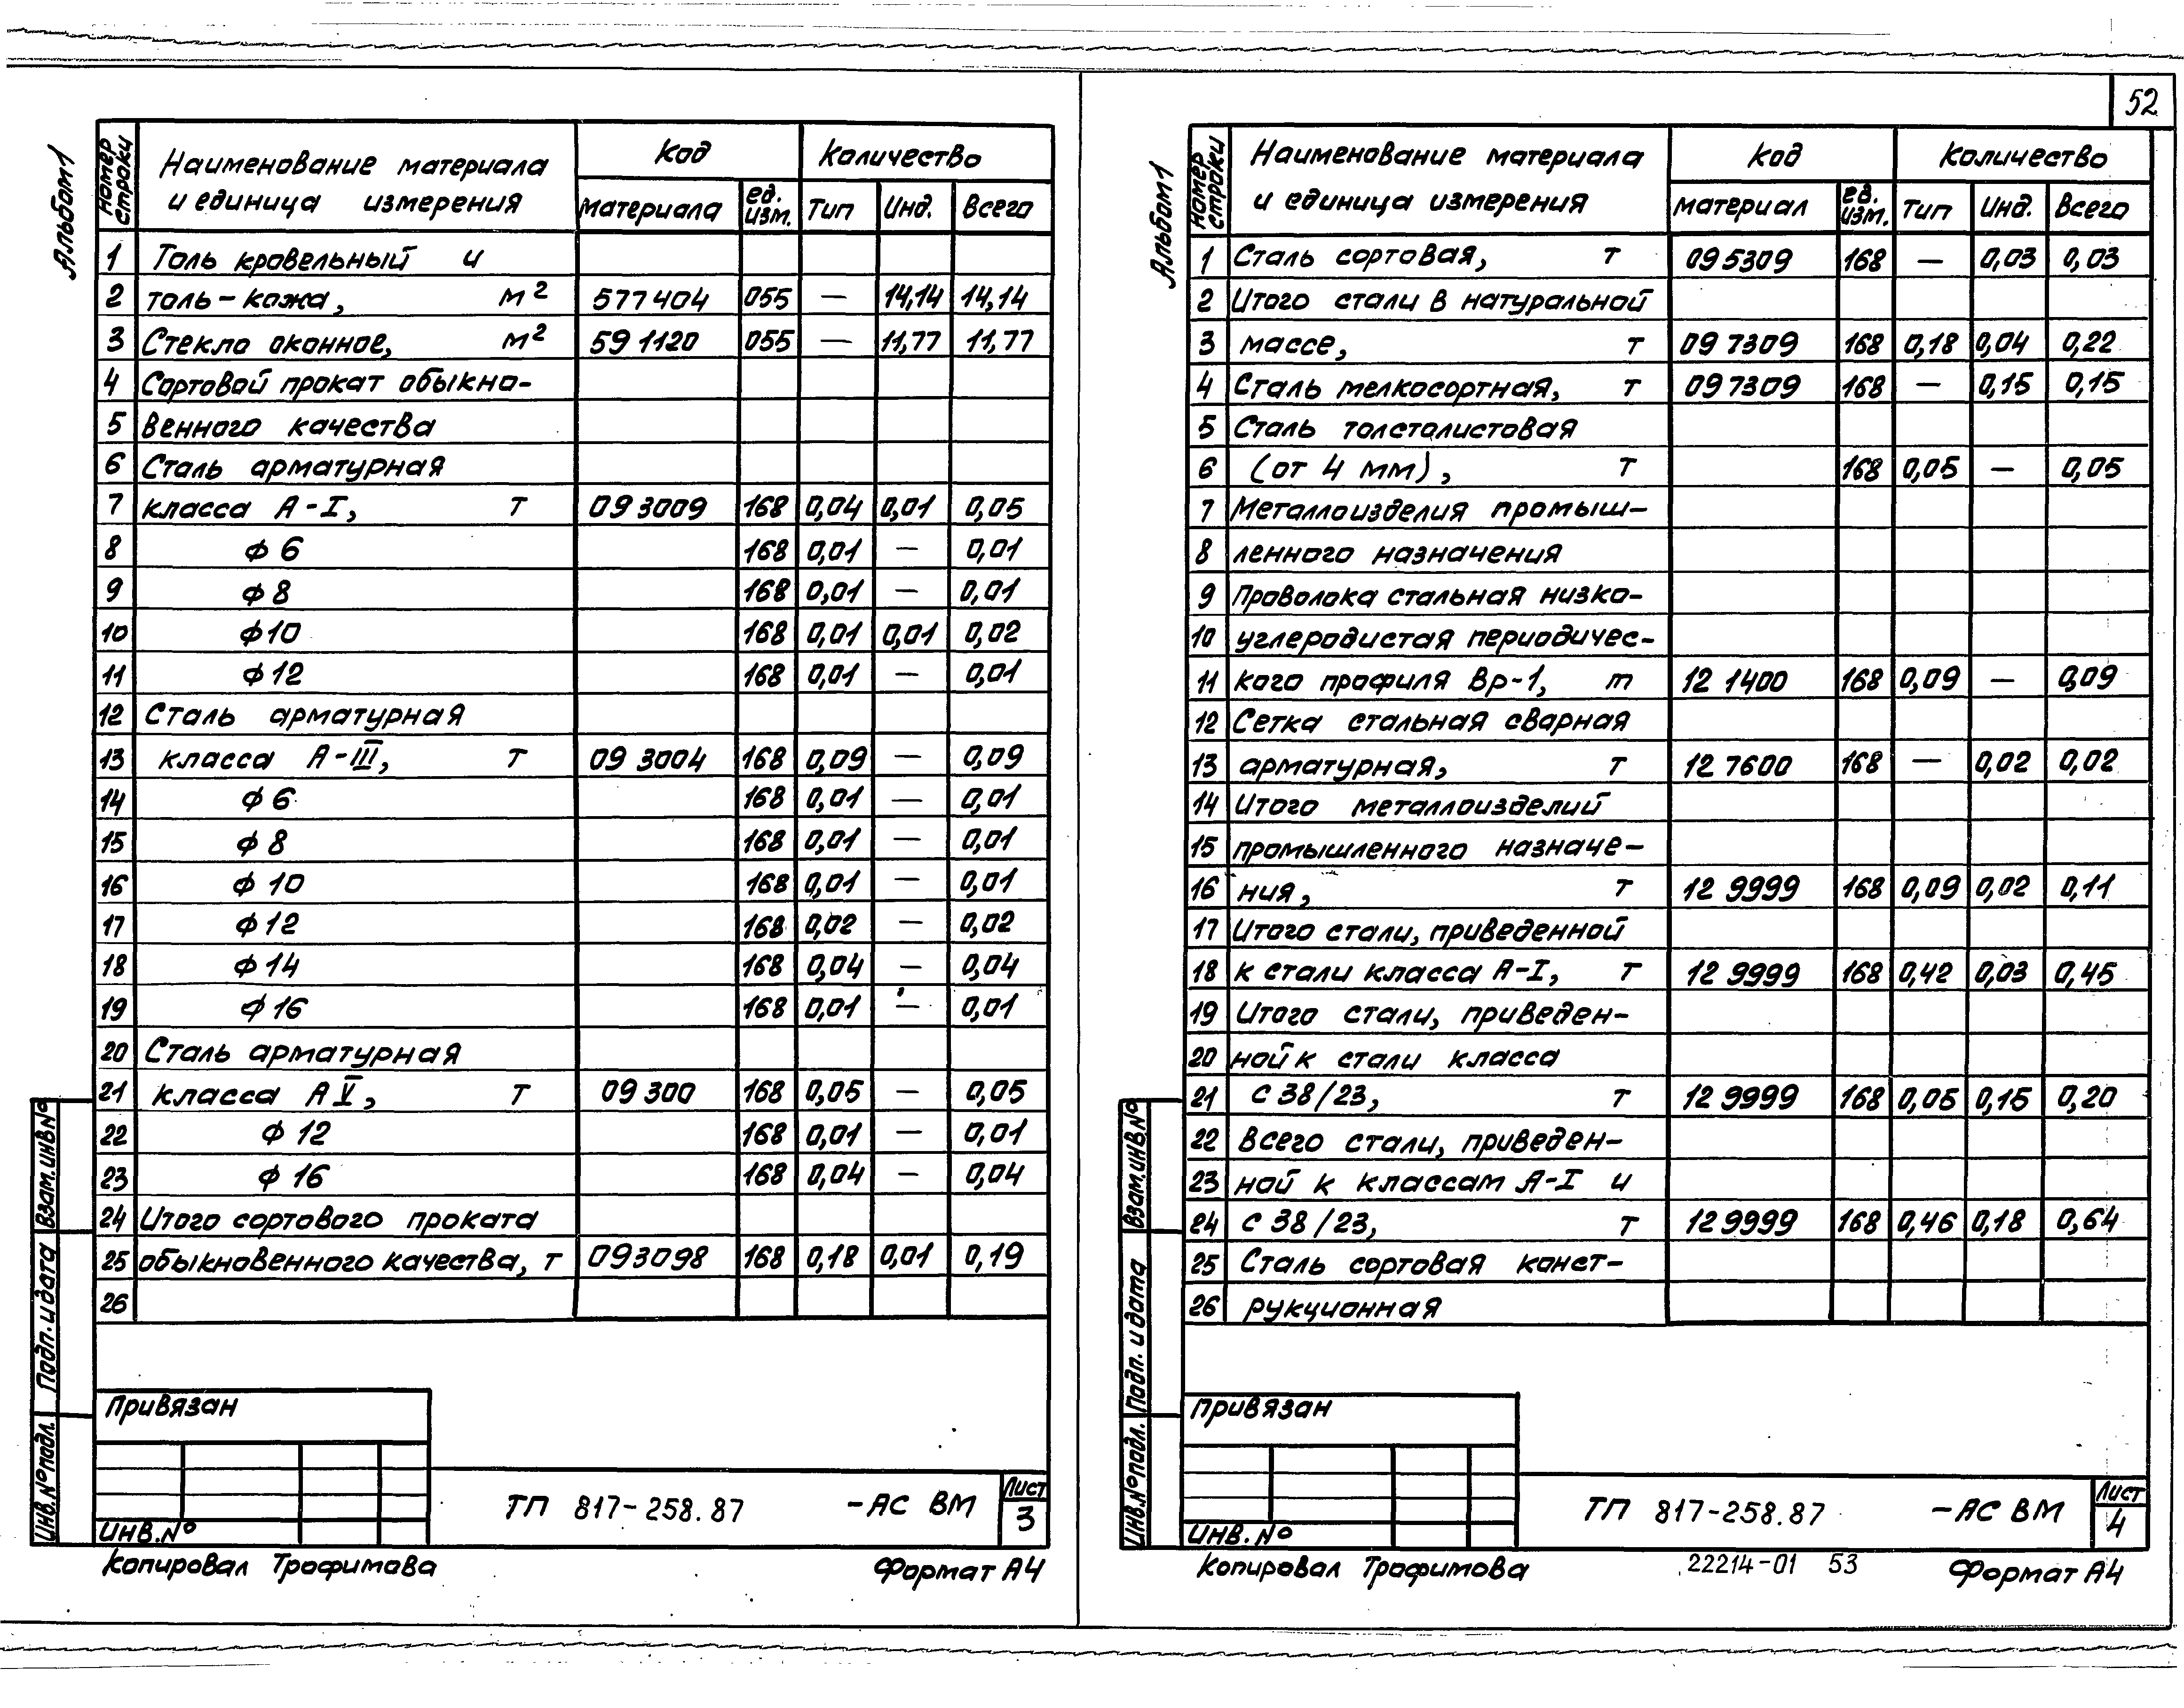 52
Альбом 1
Номер строки
Наименование материала и единица измерения
Код
Количество
материала
ед. изм.
Тип
Инд.
Всего
1 Толь кровельный и
2 толь-кожа, м² 577404 055 — 14,14 14,14
3 Стекло оконное, м² 591120 055 — 11,77 11,77
4 Сортовой прокат обыкно-
5 венного качества
6 Сталь арматурная
7 класса А-I, т 093009 168 0,04 0,01 0,05
8 ф 6 168 0,01 — 0,01
9 ф 8 168 0,01 — 0,01
10 ф 10 168 0,01 0,01 0,02
11 ф 12 168 0,01 — 0,01
12 Сталь арматурная
13 класса А-III, т 09 3004 168 0,09 — 0,09
14 ф 6 168 0,01 — 0,01
15 ф 8 168 0,01 — 0,01
16 ф 10 168 0,01 — 0,01
17 ф 12 168 0,02 — 0,02
18 ф 14 168 0,04 — 0,04
19 ф 16 168 0,01 — 0,01
20 Сталь арматурная
21 класса А V, т 09 300 168 0,05 — 0,05
22 ф 12 168 0,01 — 0,01
23 ф 16 168 0,04 — 0,04
24 Итого сортового проката
25 обыкновенного качества, т 093098 168 0,18 0,01 0,19
26
Взам. инв. №
Подп. и дата
Инв. № подл.
Привязан
Инв. №
ТП 817-258.87 -АС ВМ
Лист
3
Копировал Трофимова Формат А4
Альбом 1
Номер строки
Наименование материала и единица измерения
Код
Количество
материал
ед. изм.
Тип
Инд.
Всего
1 Сталь сортовая, т 095309 168 — 0,03 0,03
2 Итого стали в натуральной
3 массе, т 09 7309 168 0,18 0,04 0,22
4 Сталь мелкосортная, т 097309 168 — 0,15 0,15
5 Сталь толстолистовая
6 (от 4 мм), т 168 0,05 — 0,05
7 Металлоизделия промыш-
8 ленного назначения
9 Проволока стальная низко-
10 углеродистая периодичес-
11 кого профиля Вр-1, т 12 1400 168 0,09 — 0,09
12 Сетка стальная сварная
13 арматурная, т 12 7600 168 — 0,02 0,02
14 Итого металлоизделий
15 промышленного назначе-
16 ния, т 12 9999 168 0,09 0,02 0,11
17 Итого стали, приведенной
18 к стали класса А-I, т 12 9999 168 0,42 0,03 0,45
19 Итого стали, приведен-
20 ной к стали класса
21 с 38/23, т 12 9999 168 0,05 0,15 0,20
22 Всего стали, приведен-
23 ной к классам А-I и
24 с 38/23, т 12 9999 168 0,46 0,18 0,64
25 Сталь сортовая конст-
26 рукционная
Взам. инв. №
Подп. и дата
Инв. № подл.
Привязан
Инв. №
ТП 817-258.87 -АС ВМ
Лист
4
Копировал Трофимова 22214-01 53 Формат А4